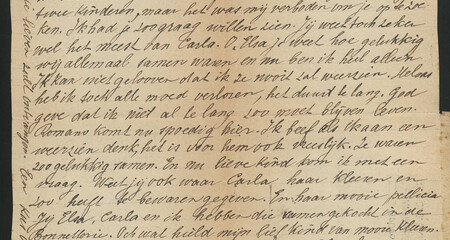 twee kinderen, maar het was mij verboden om je op te zoe
ken. Ik had je zoo graag willen zien. Jij weet toch zeker
wel het meest van Carla. O, Elsa je weet hoe gelukkig
wij allemaal samen waren en nu ben ik heel alleen
Ik kan niet gelooven dat ik ze nooit zal weerzien. Helaas
heb ik ook alle moed verloren, het duurt te lang. God
geve dat ik niet al te lang zoo moet blijven leven.
Romano komt nu spoedig hier. Ik beef als ik aan een
weerzien denk, het is voor hem ook vreeselijk. Ze waren
zoo gelukkig samen. En nu lieve kind kom ik met een
vraag. Weet jij ook waar Carla haar kleeren en
zoo heeft te bewaren gegeven. En haar mooie pellicia
Jij Elsa, Carla en ik hebben die samen gekocht in de
Bonneterie. Och wat hield mijn lief kind van mooie kleeren.